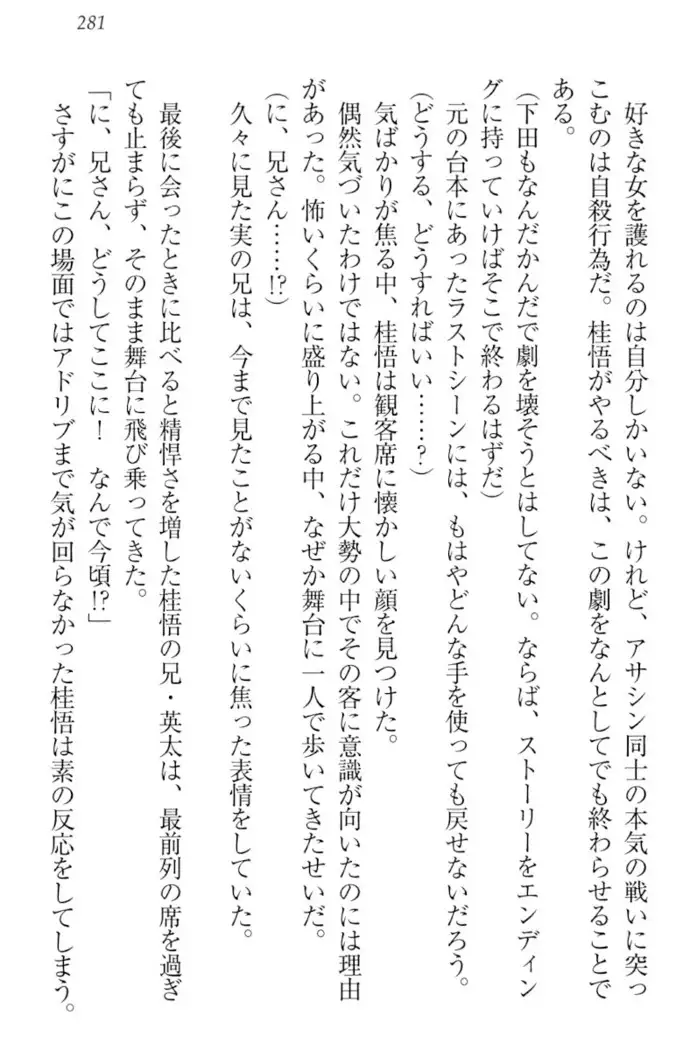 281
好きな女を護れるのは自分しかいない。けれど、アサシン同士の本気の戦いに突っ
こむのは自殺行為だ。桂悟がやるべきは、この劇をなんとしてでも終わらせることで
ある。
(下田もなんだかんだで劇を壊そうとはしてない。ならば、ストーリーをエンディン
グに持っていけばそこで終わるはずだ)
元の台本にあったラストシーンには、もはやどんな手を使っても戻せないだろう。
(どうする、どうすればいい……?)
気ばかりが焦る中、桂悟は観客席に懐かしい顔を見つけた。
偶然気づいたわけではない。これだけ大勢の中でその客に意識が向いたのには理由
があった。怖いくらいに盛り上がる中、なぜか舞台に一人で歩いてきたせいだ。
(に、兄さん……!?)
久々に見た実の兄は、今まで見たことがないくらいに焦った表情をしていた。
最後に会ったときに比べると精悍さを増した桂悟の兄・英太は、最前列の席を過ぎ
ても止まらず、そのまま舞台に飛び乗ってきた。
「に、兄さん、どうしてここに! なんで今頃!?」
さすがにこの場面ではアドリブまで気が回らなかった桂悟は素の反応をしてしまう。